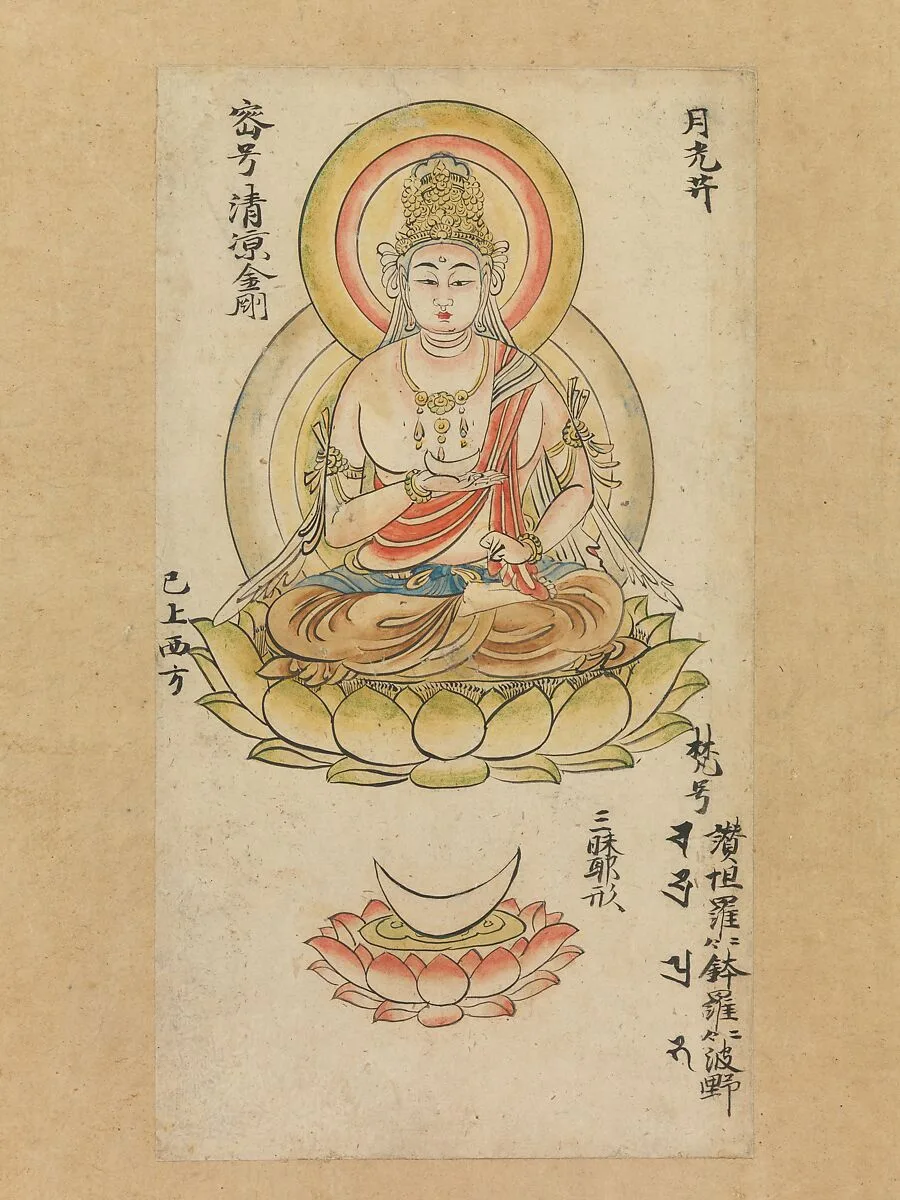 月光𦬇
梵号
讃怛羅二合鉢羅二合波野
三昧耶形
密号清凉金剛
已上西方